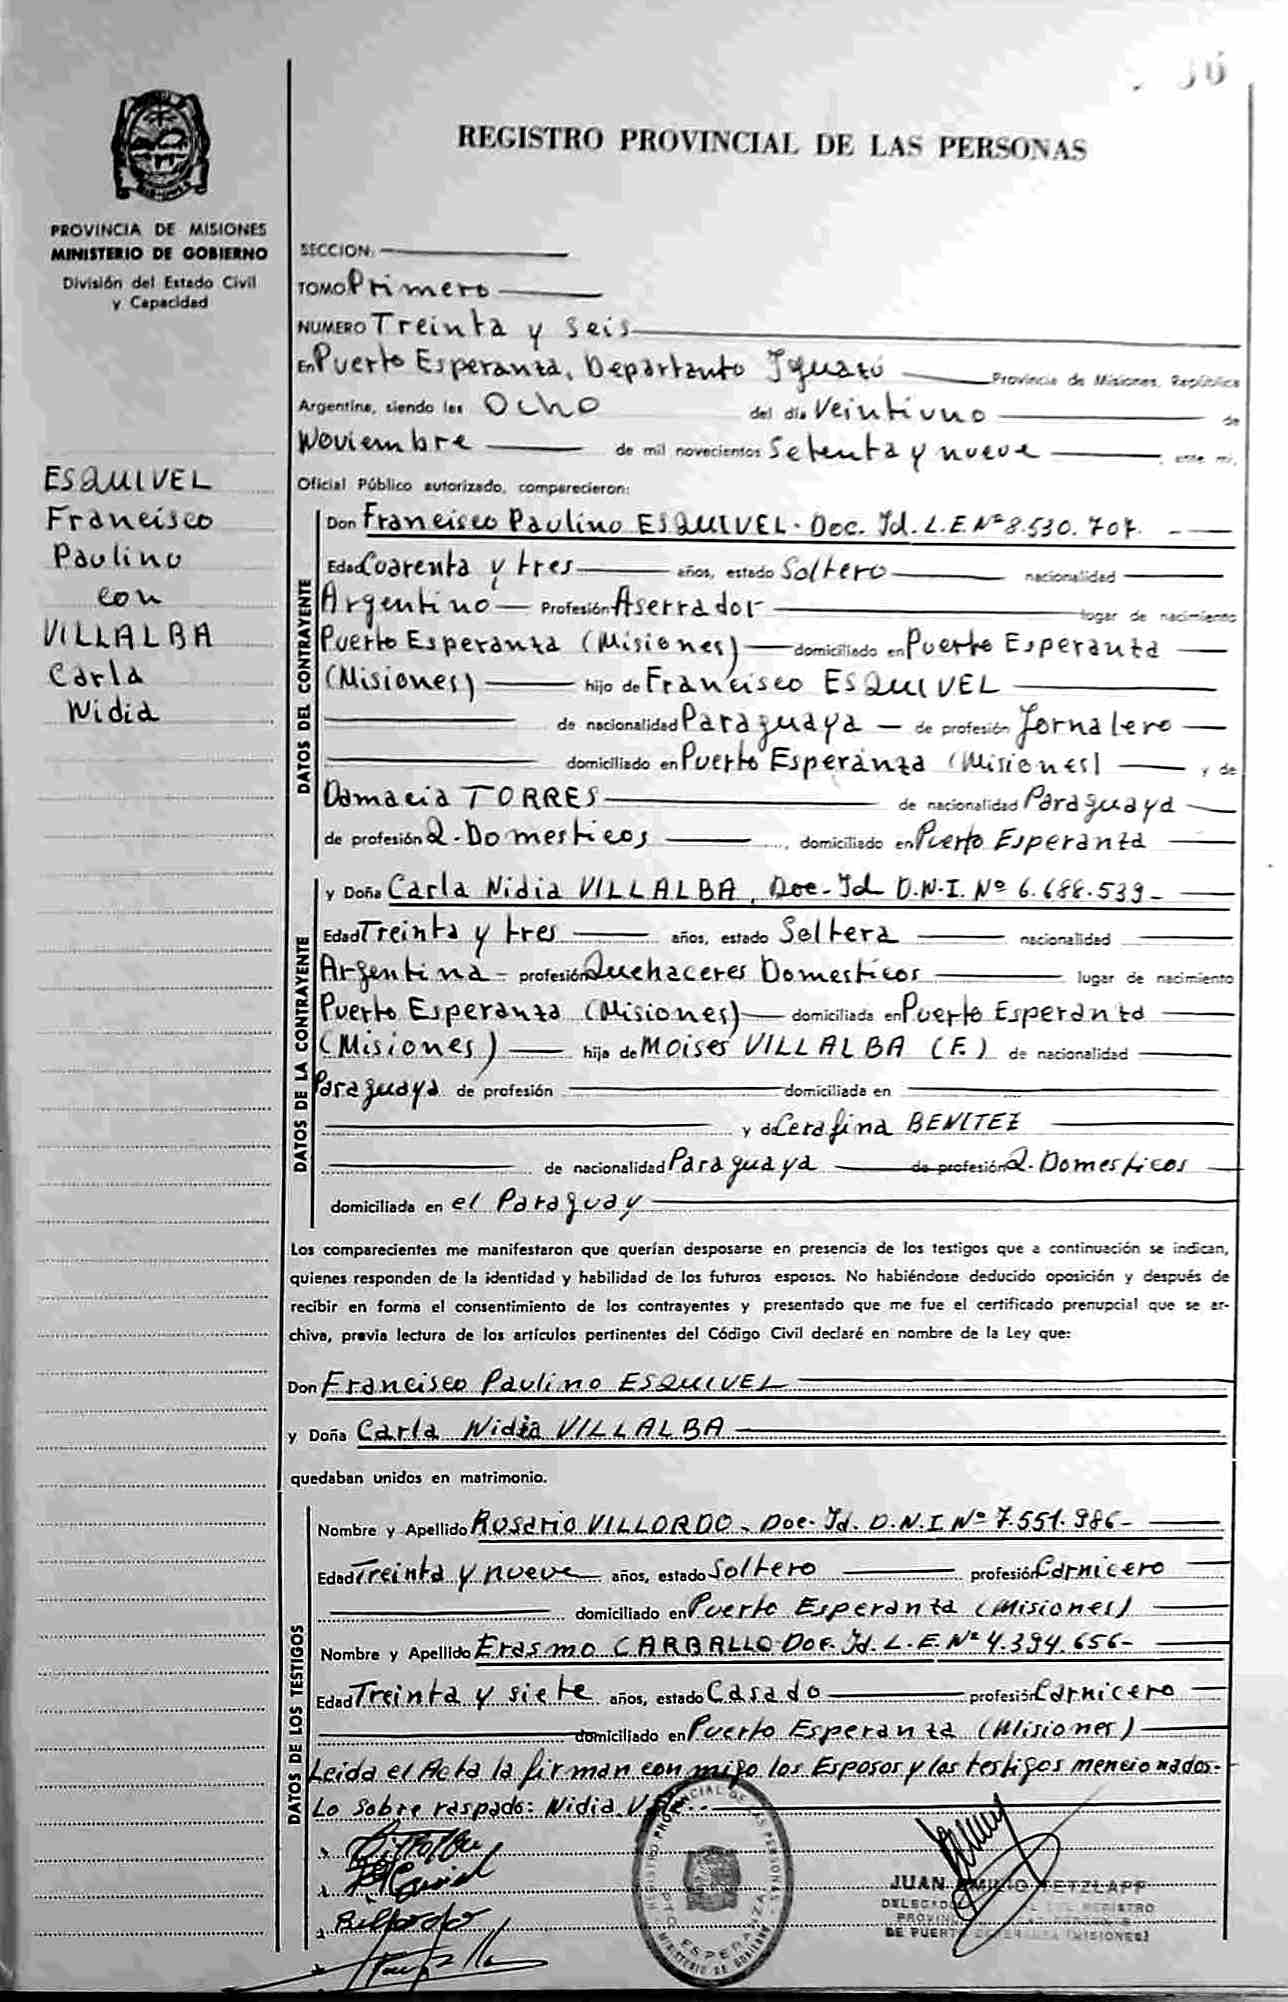 36
REGISTRO PROVINCIAL DE LAS PERSONAS
PROVINCIA DE MISIONES
MINISTERIO DE GOBIERNO
División del Estado Civil
y Capacidad
ESQUIVEL
Francisco
Paulino
con
VILLALBA
Carla
Nidia
SECCION:
TOMO Primero
NUMERO Treinta y seis
En Puerto Esperanza, Departanto Iguazú Provincia de Misiones, República
Argentina, siendo las Ocho del día Veintiuno de
Noviembre de mil novecientos Setenta y nueve, ante mí,
Oficial Público autorizado, comparecieron:
DATOS DEL CONTRAYENTE
Don Francisco Paulino ESQUIVEL- Doc. Id. L.E. Nº 8.530.707.
Edad Cuarenta y tres años, estado Soltero nacionalidad
Argentino Profesión Aserrador lugar de nacimiento
Puerto Esperanza (Misiones) domiciliado en Puerto Esperanza
(Misiones) hijo de Francisco ESQUIVEL
de nacionalidad Paraguaya de profesión Jornalero
domiciliado en Puerto Esperanza (Misiones) y de
Damacia TORRES de nacionalidad Paraguaya
de profesión Q. Domesticos, domiciliado en Puerto Esperanza
DATOS DE LA CONTRAYENTE
y Doña Carla Nidia VILLALBA, Doc. Id D.N.I. Nº 6.688.539-
Edad Treinta y tres años, estado Soltera nacionalidad
Argentina- profesión Quehaceres Domesticos lugar de nacimiento
Puerto Esperanza (Misiones) domiciliada en Puerto Esperanza
(Misiones) hija de Moises VILLALBA (F.) de nacionalidad
Paraguaya de profesión domiciliada en
y de Cerafina BENITEZ
de nacionalidad Paraguaya de profesión Q. Domesticos
domiciliada en el Paraguay
Los comparecientes me manifestaron que querían desposarse en presencia de los testigos que a continuación se indican,
quienes responden de la identidad y habilidad de los futuros esposos. No habiéndose deducido oposición y después de
recibir en forma el consentimiento de los contrayentes y presentado que me fue el certificado prenupcial que se ar-
chiva, previa lectura de los artículos pertinentes del Código Civil declaré en nombre de la Ley que:
Don Francisco Paulino ESQUIVEL
y Doña Carla Nidia VILLALBA
quedaban unidos en matrimonio.
DATOS DE LOS TESTIGOS
Nombre y Apellido Rosario VILLORDO- Doc. Id. D.N.I Nº 7.551.986-
Edad Treinta y nueve años, estado Soltero profesión Carnicero
domiciliado en Puerto Esperanza (Misiones)
Nombre y Apellido Erasmo CARBALLO-Doc. Id. L.E. Nº 4.394.656-
Edad Treinta y siete años, estado Casado profesión Carnicero
domiciliado en Puerto Esperanza (Misiones)
Leida el Acta la firman con migo los Esposos y los testigos mencionados-
Lo sobre raspado: Nidia
REGISTRO PROVINCIAL DE LAS PERSONAS
PTO ESPERANZA
MINISTERIO DE GOBIERNO
JUAN EMILIO TETZLAFF
REGISTRO
DE PUERTO ESPERANZA (MISIONES)